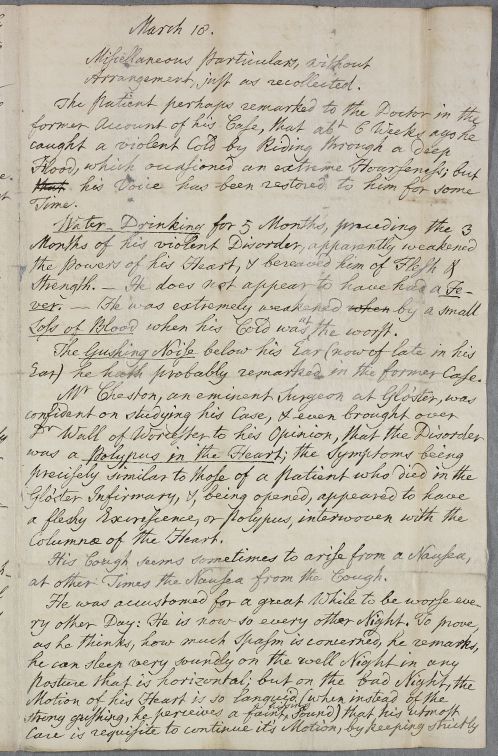 March 18.
Miscellaneous Particulars, without
Arrangement, just as recollected.
The Patient perhaps remarked to the Doctor in the
former Account of his Case, that abt 6 Weeks ago he
caught a violent Cold by Riding through a deep
Flood, which occasioned an extreme Hoarseness; but
that his Voice has been restored to him for some
Time.
Water-Drinking for 5 Months, preceding the 3
Months of his violent Disorder, apparently weakened
the Powers of his Heart, & bereaved him of Flesh &
Strength. — He does not appear to have had a Fe-
ver. — He was extremely weakened when by a small
Loss of Blood when his Cold was at the worst.
The Gushing Noise below his Ear (now of late in his
Ear) he hath probably remarked in the former Case.
Mr Cheston, an eminent Surgeon at Glo'ster, was
confident on studying his Case, & even brought over
Dr Wall of Worcester to his Opinion, that the Disorder
was a Polypus in the Heart; the Symptoms being
precisely similar to those of a Patient who died in the
Glo'ster Infirmary, &, being opened, appeared to have
a fleshy Excrescence, or Polypus, interwoven with the
Columnæ of the Heart.
His Cough seems sometimes to arise from a Nausea,
at other Times the Nausea from the Cough.
He was accustomed for a great While to be worse eve-
ry other Day: He is now so every other Night. To prove,
as he thinks, how much Spasm is concerned, he remarks,
he can sleep very soundly on the well Night in any
Posture that is horizontal; but on the bad Night, the
Motion of his Heart is so languid (when instead of the
strong gushing, he perceives a faint Sound) that his utmost
Care is requisite to continue its Motion, by keeping strictly